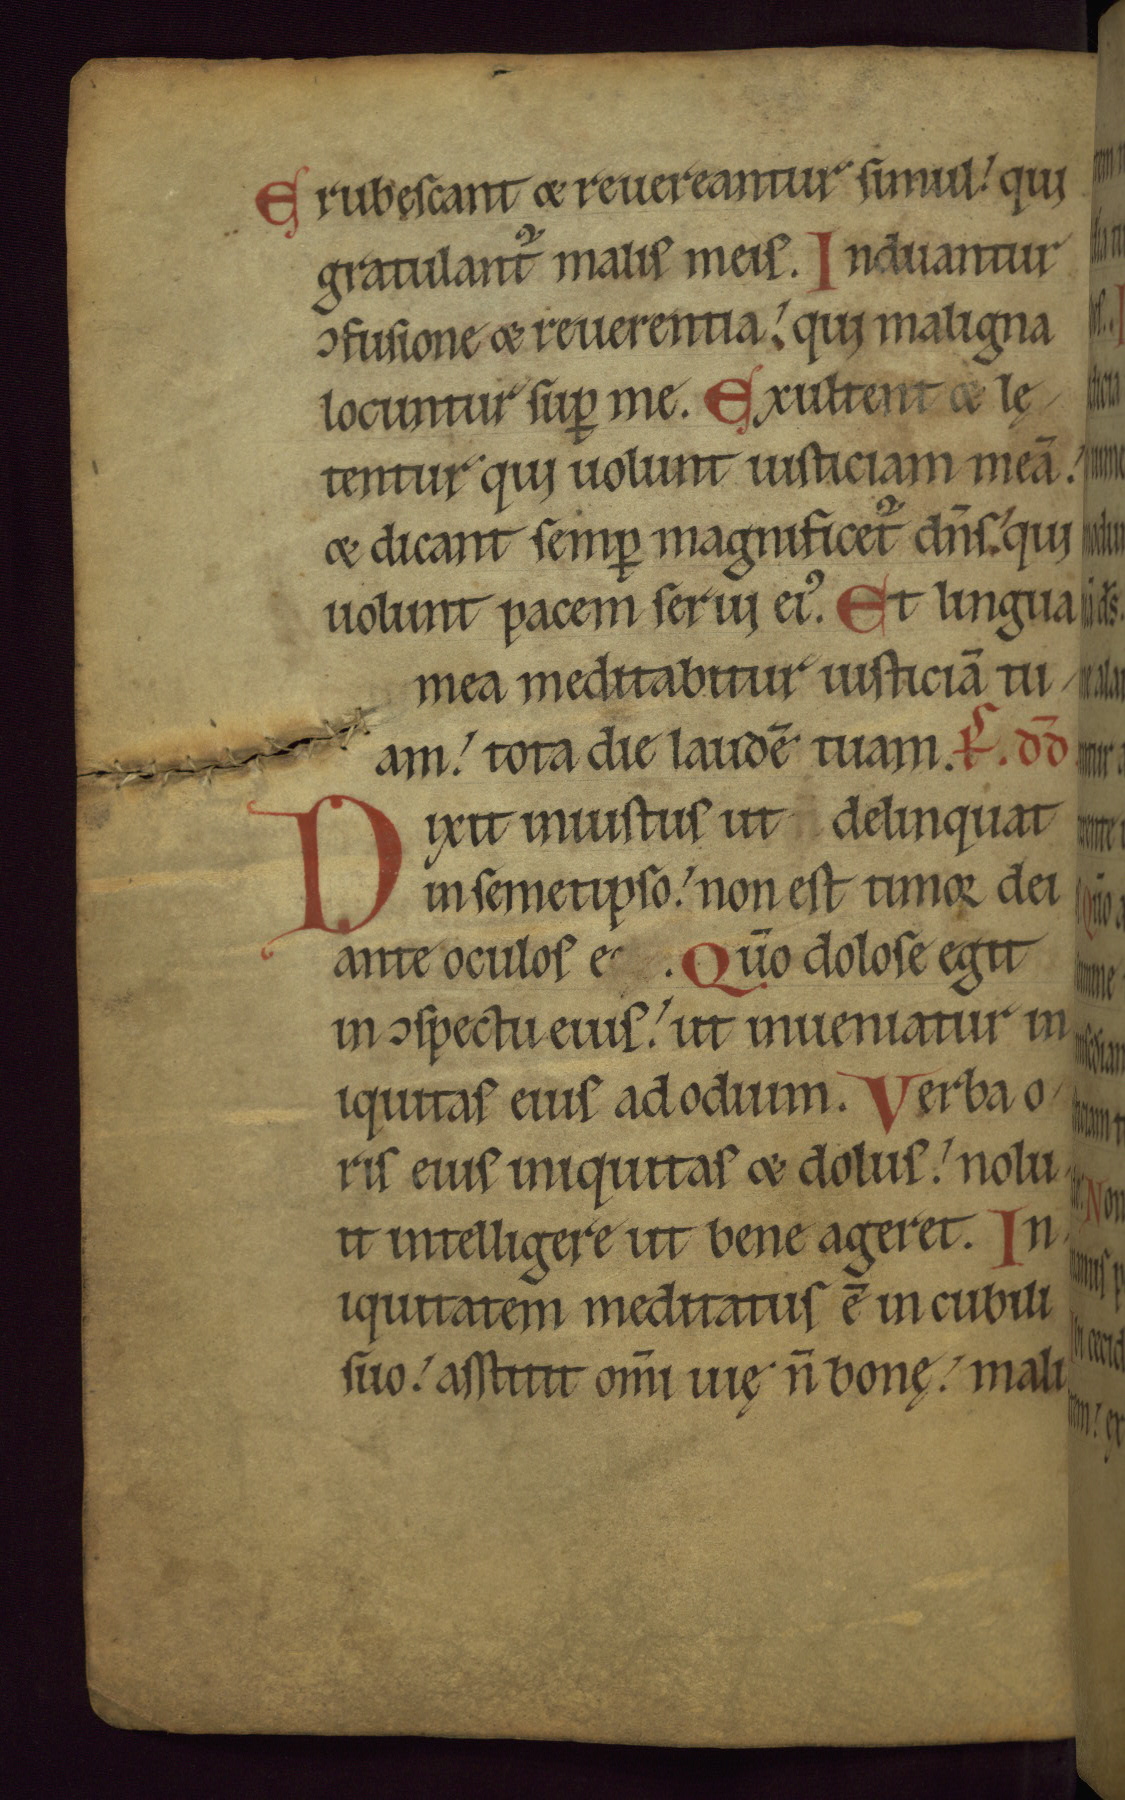 Erubescant & reuereantur simul! qui
gratulant᷑ malis meis. Induantur
ɔfusione & reuerentia! qui maligna
locuntur sup̲ me. Exultent & lę
tentur qui uolunt iusticiam meā!
& dicant semp̲ magnificet᷑ dn̄s! qui
uolunt pacem serui eiꝰ. Et lingua
mea meditabitur iusticiā tu
am! tota die laudē tuam. Ps. dd
Dixit iniustus ut delinquat
in semetipso! non est timor dei
ante oculos e . Qūo dolose egit
in ɔspectu eius! ut inueniatur in
iquitas eius ad odium. Verba o
ris eius iniquitas & dolus! nolu
it intelligere ut bene ageret. In
iquitatem meditatus ē in cubili
suo! asstitit om̄i uię n̄ bonę! mali